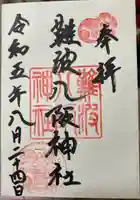 奉拝
難波八阪神社
令和五年八月二十四日